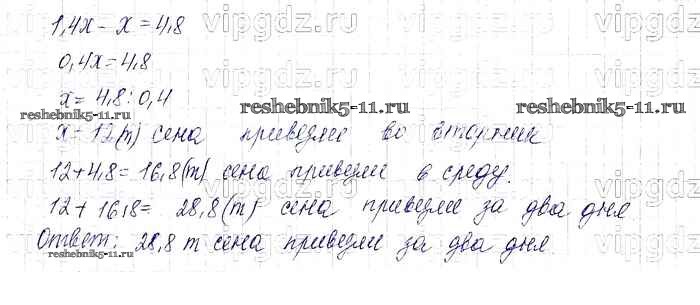 1,4x - x = 4,8
0,4x = 4,8
x = 4,8 : 0,4
x = 12(т) сена привезли во вторник
12 + 4,8 = 16,8(т) сена привезли в среду.
12 + 16,8 = 28,8(т) сена привезли за два дня
Ответ: 28,8 т сена привезли за два дня.
reshebnik5-11.ru
reshebnik5-11.ru
reshebnik5-11.ru
reshebnik5-11.ru
vipgdz.ru
vipgdz.ru
vipgdz.ru
vipgdz.ru